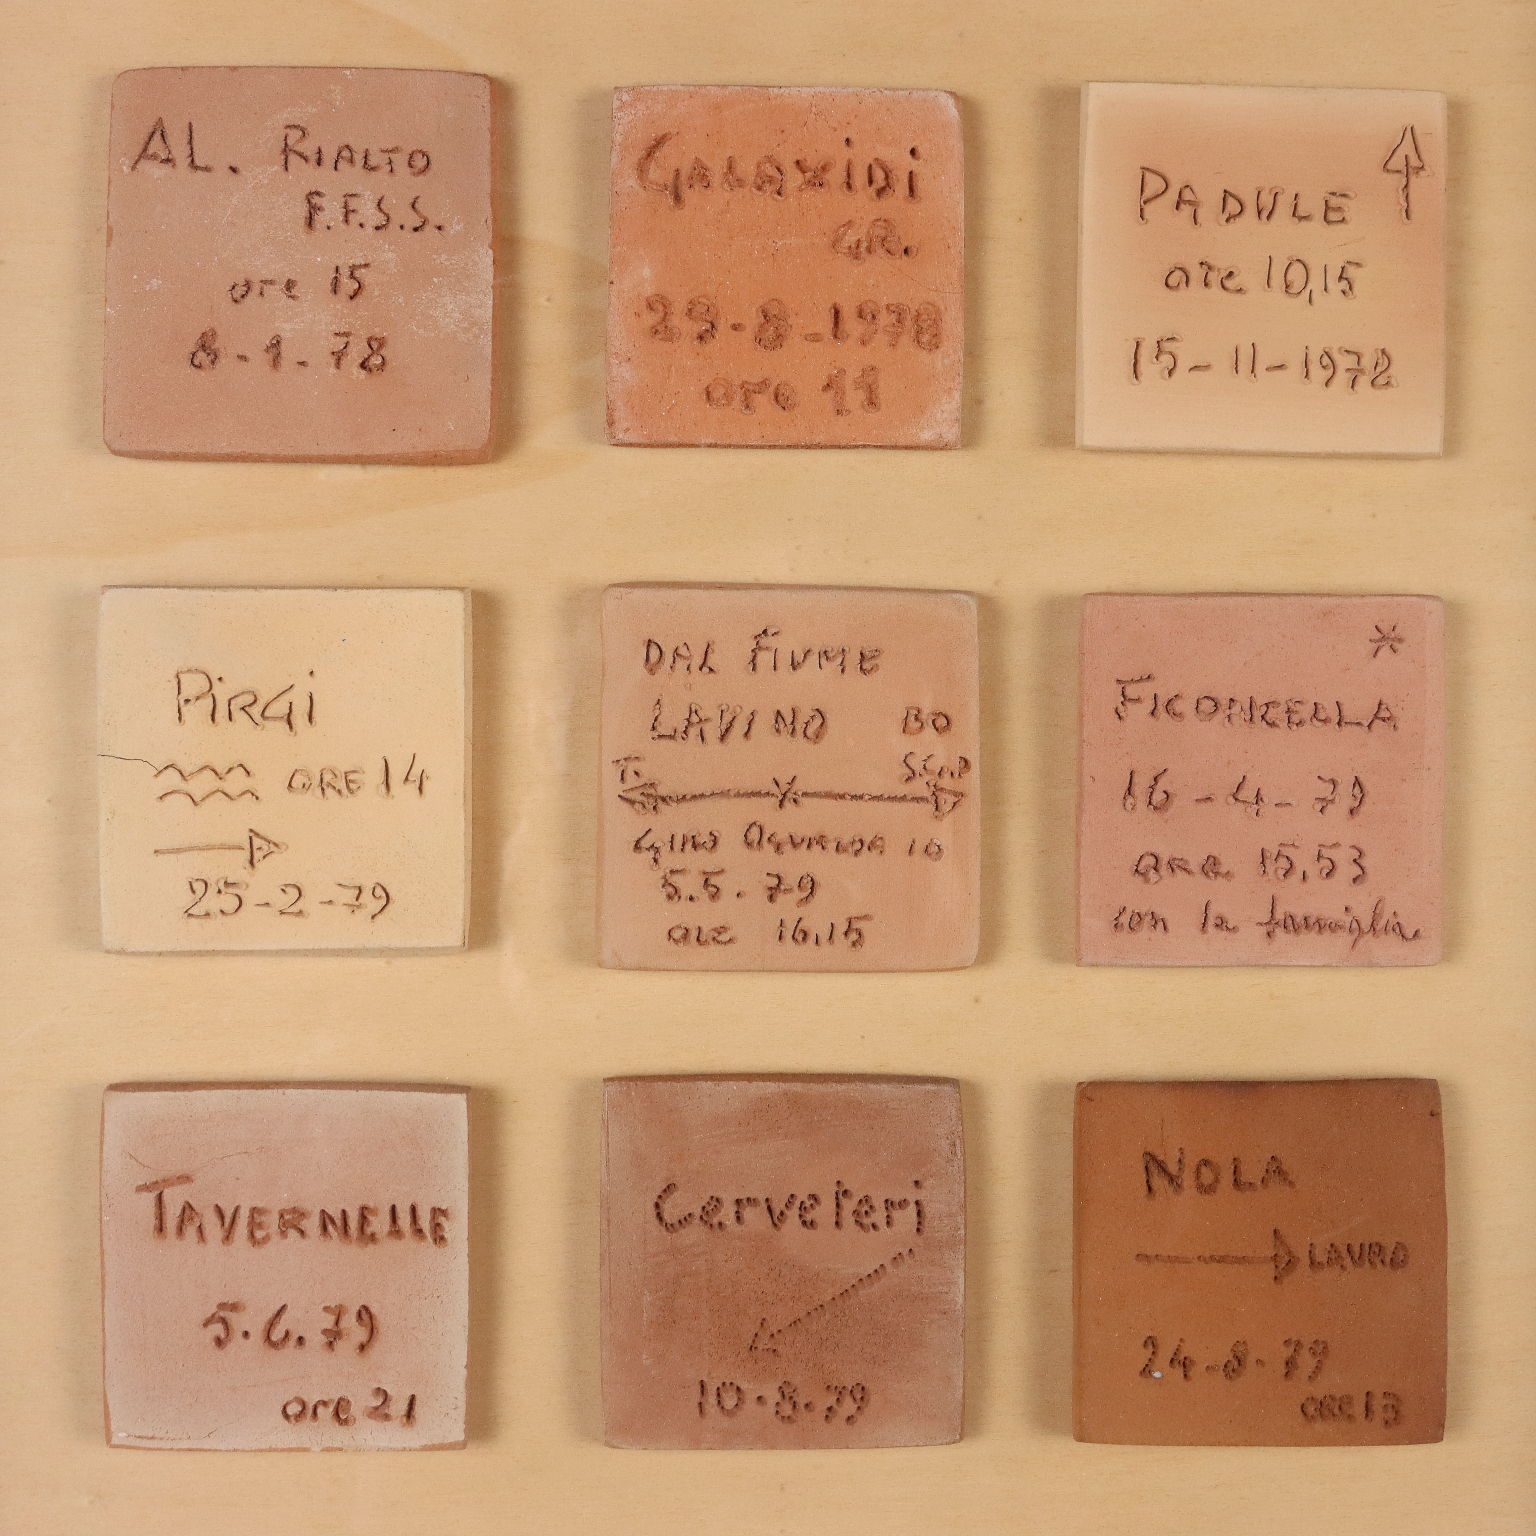 AL. RIALTO
F.F.S.S.
ore 15
8-1-78
GALAXIDI
GR.
29-8-1978
ore 11
PADULE
ore 10,15
15-11-1978
PiRGi
ORE 14
25-2-79
DAL FIUME
LAVINO BO
T.
5.5.79
ore 16,15
*
FICONCELLA
16-4-79
ORE 15,53
con la famiglia
TAVERNELLE
5.6.79
ore 21
Cerveteri
10-8-79
NOLA
LAURO
24-8-79
ORE 13